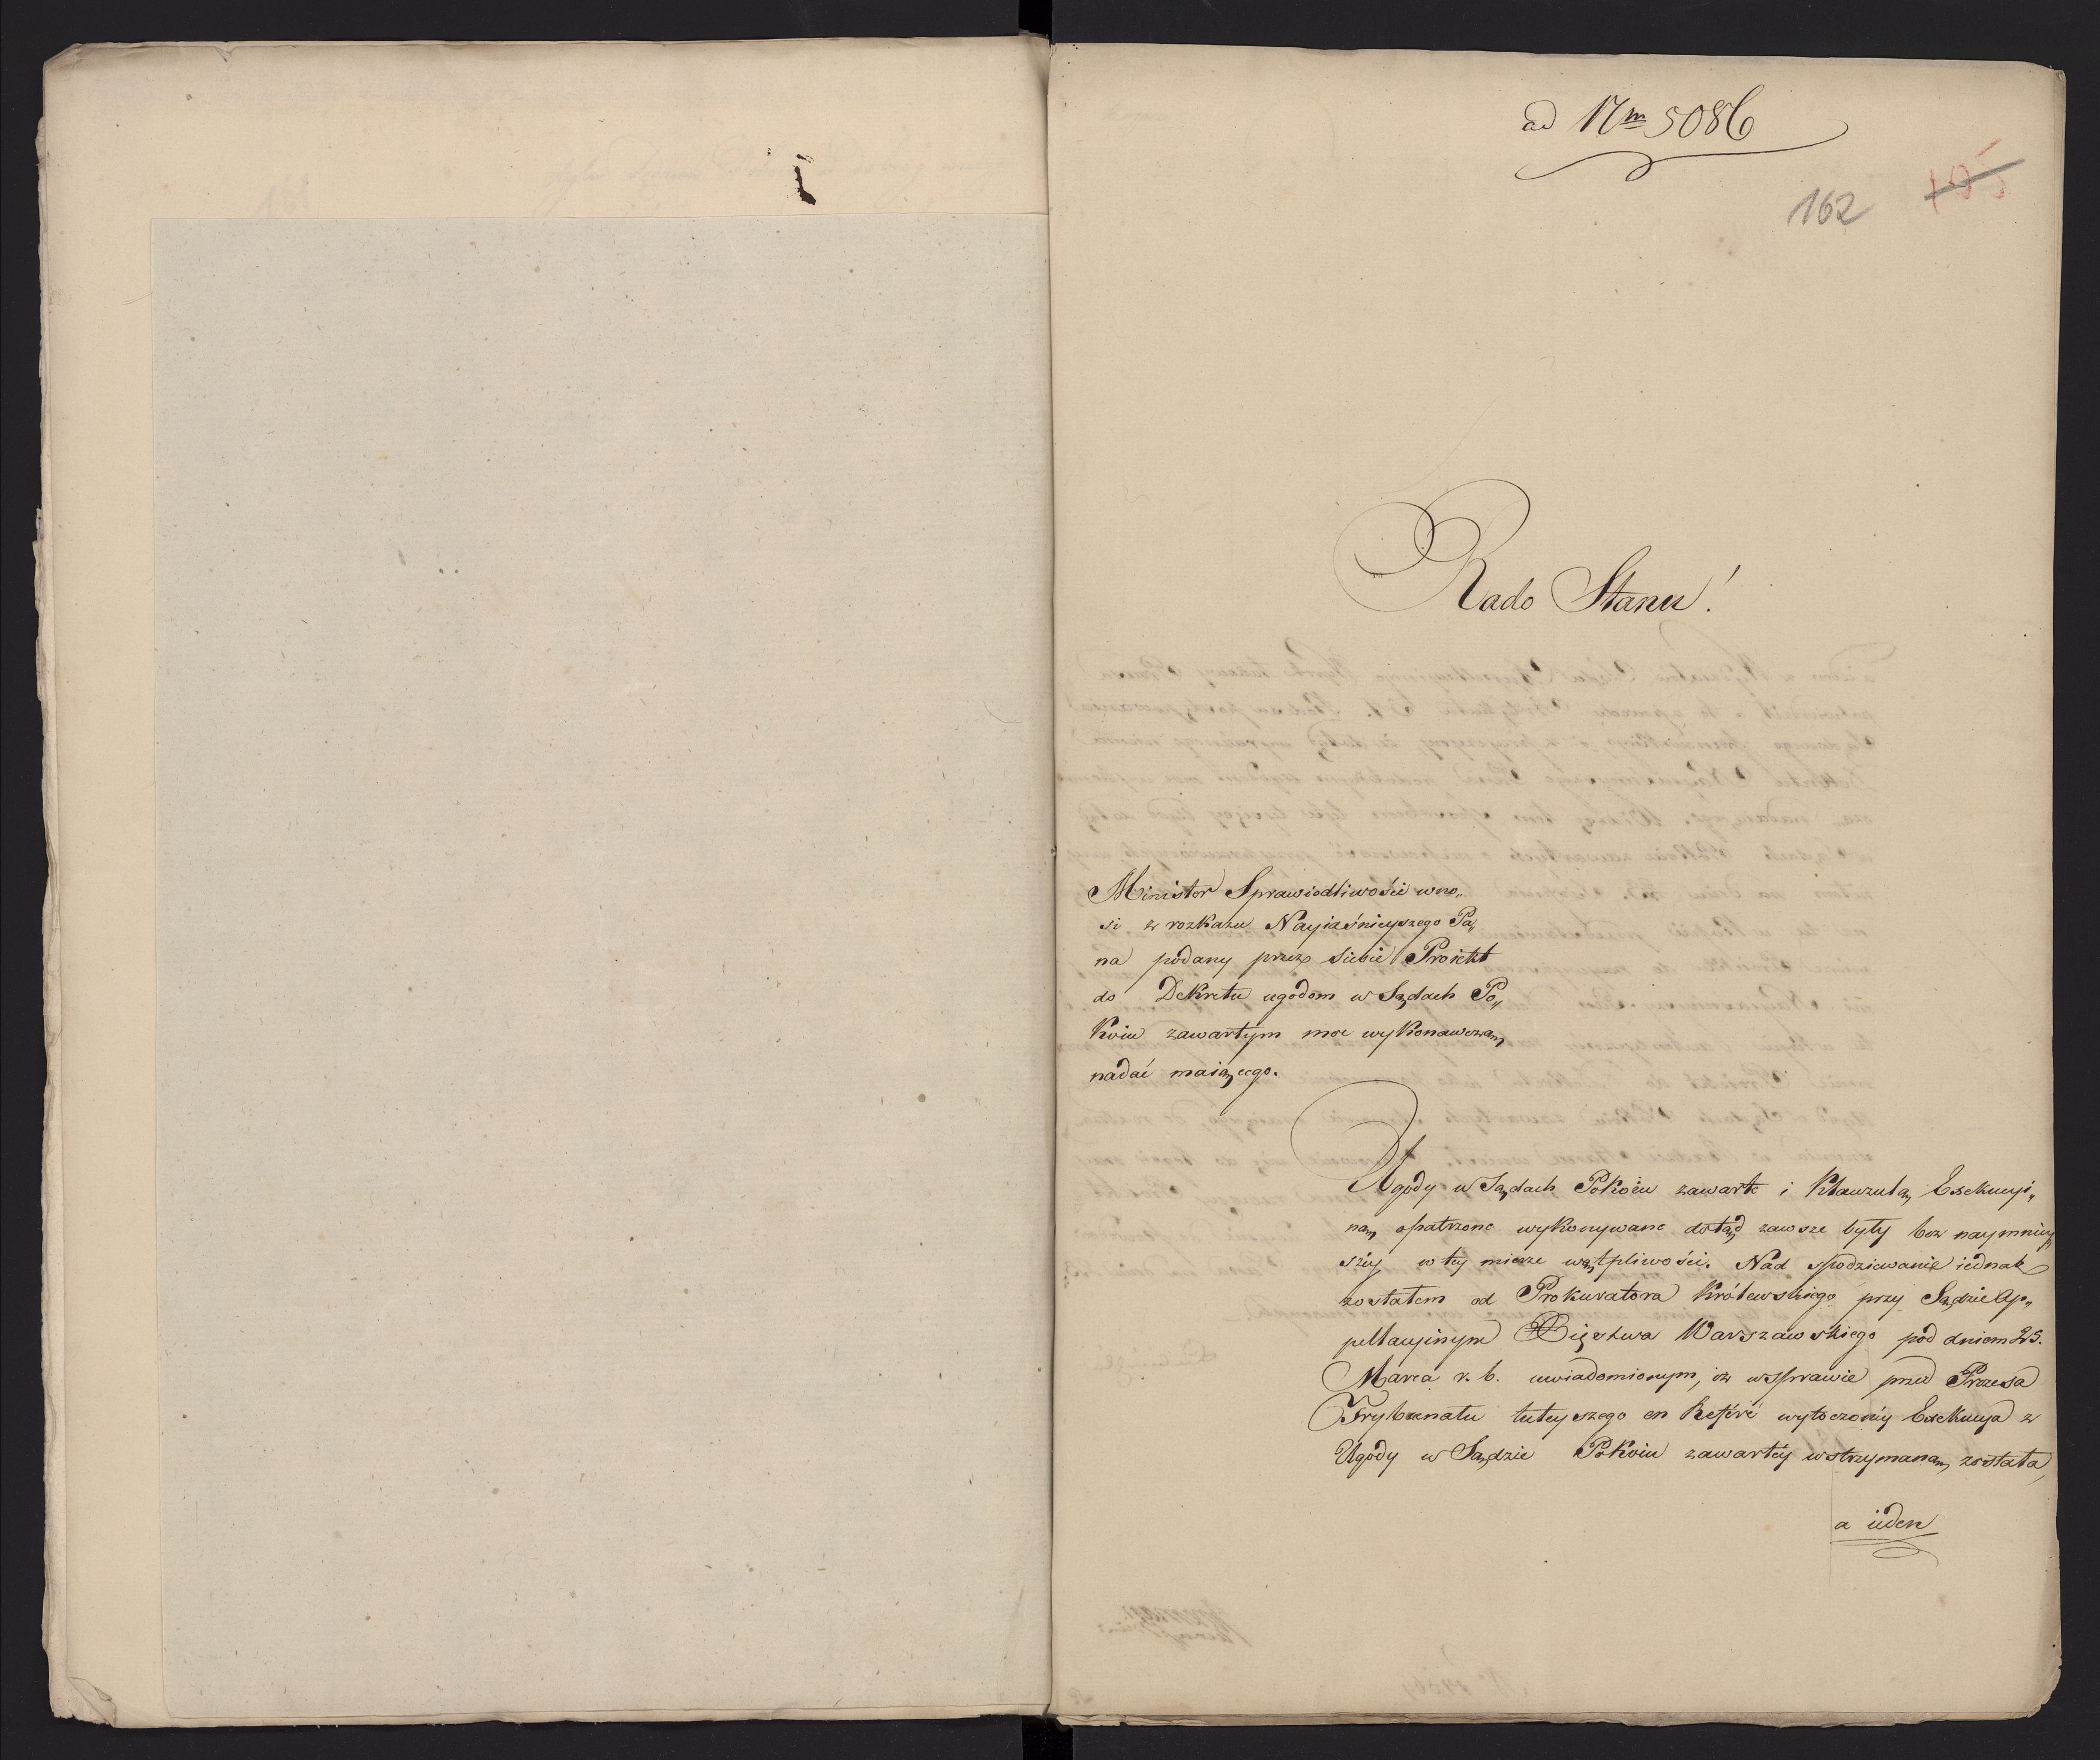 ad Nm 5086
162
105
Rado Stanu!
Minister Sprawiedliwości wno„
si z rozkazu Nayiaśnieyszego Pa„
na podany przez siebie Proiekt
do Dekretu ugodom w Sądach Po„
koiu zawartym moc wykonawczą
nadać maiącego.
Ugody w Sądach Pokoiu zawarte i Klauzulą Exekucyi„
ną opatrzone wykonywane dotąd zawsze były bez naymniey„
széy w tey mierze wątpliwości. Nad spodziewanie iednak
zostałem od Prokuratora Królewskiego przy Sądzie Ap„
pellacyinym Xięstwa Warszawskiego pod dniem 25.
Marca r. b. uwiadomionym, iż w sprawie przed Prezesa
Trybunału tuteyszego en Reféré wytoczonéy Exekucya z
Ugody w Sądzie Pokoiu zawartéy wstrzymaną została,
a ieden